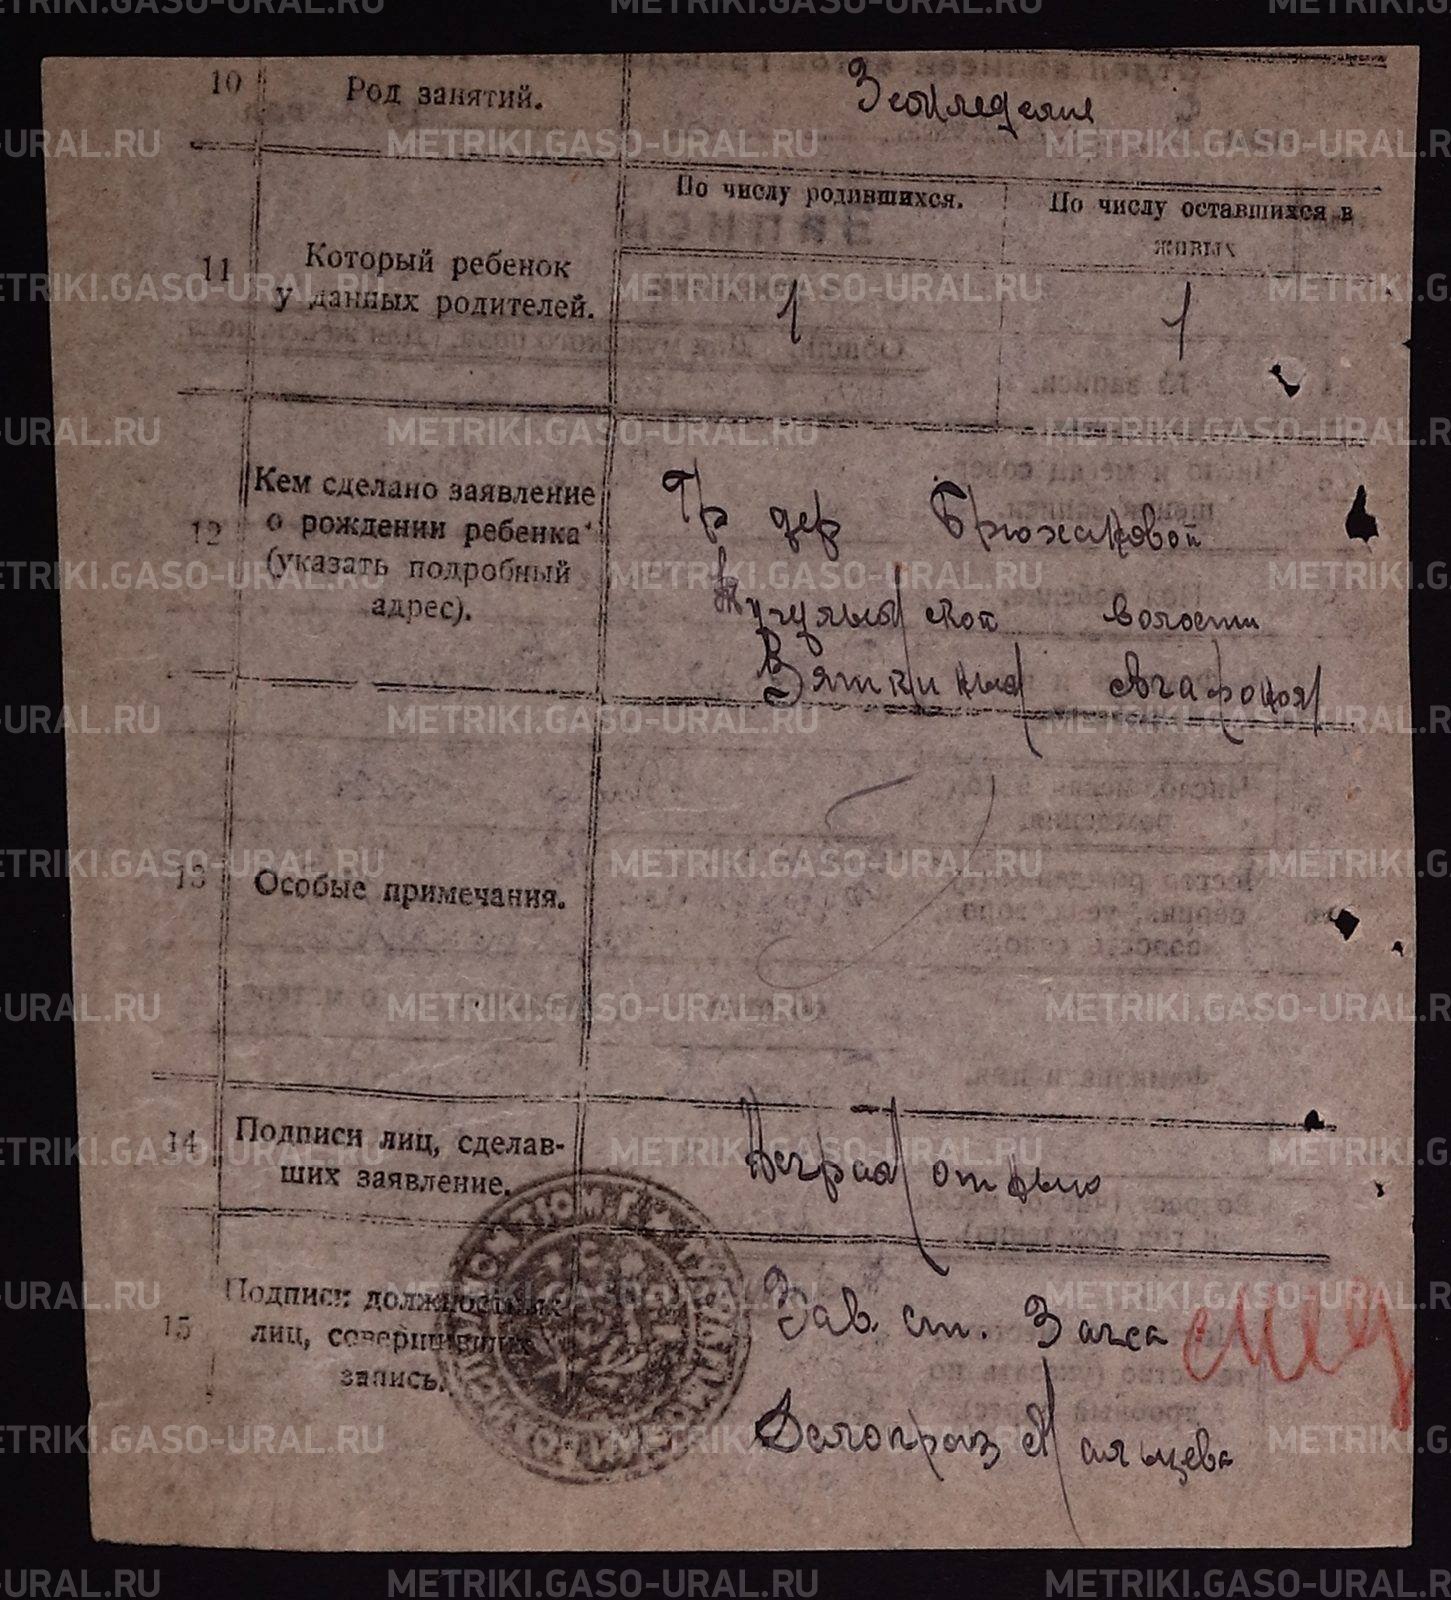 10 Род занятий. Земледелие
11 Который ребенок у данных родителей.
По числу родившихся. По числу оставшихся в живых
1 1
12 Кем сделано заявление
о рождении ребенка
(указать подробный
адрес).
Гр дер Брюхановой
волости
Вяткиным Агафоноя
13 Особые примечания.
14 Подписи лиц, сделав-
ших заявление.
Неграмотным
15 Подписи должностных
лиц, совершивших
запись.
Зав. ст. Загса
Делопроиз Мальцева
METRIKI.GASO-URAL.RU